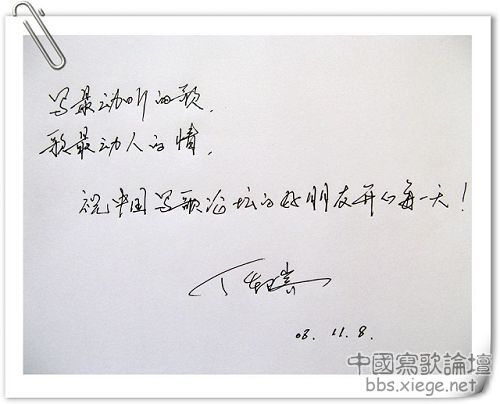 写最动听的歌,
歌最动人的情,
祝中国写歌论坛的好朋友开心每一天!
03.11.8.
中國寫歌論壇
bbs.xiege.net